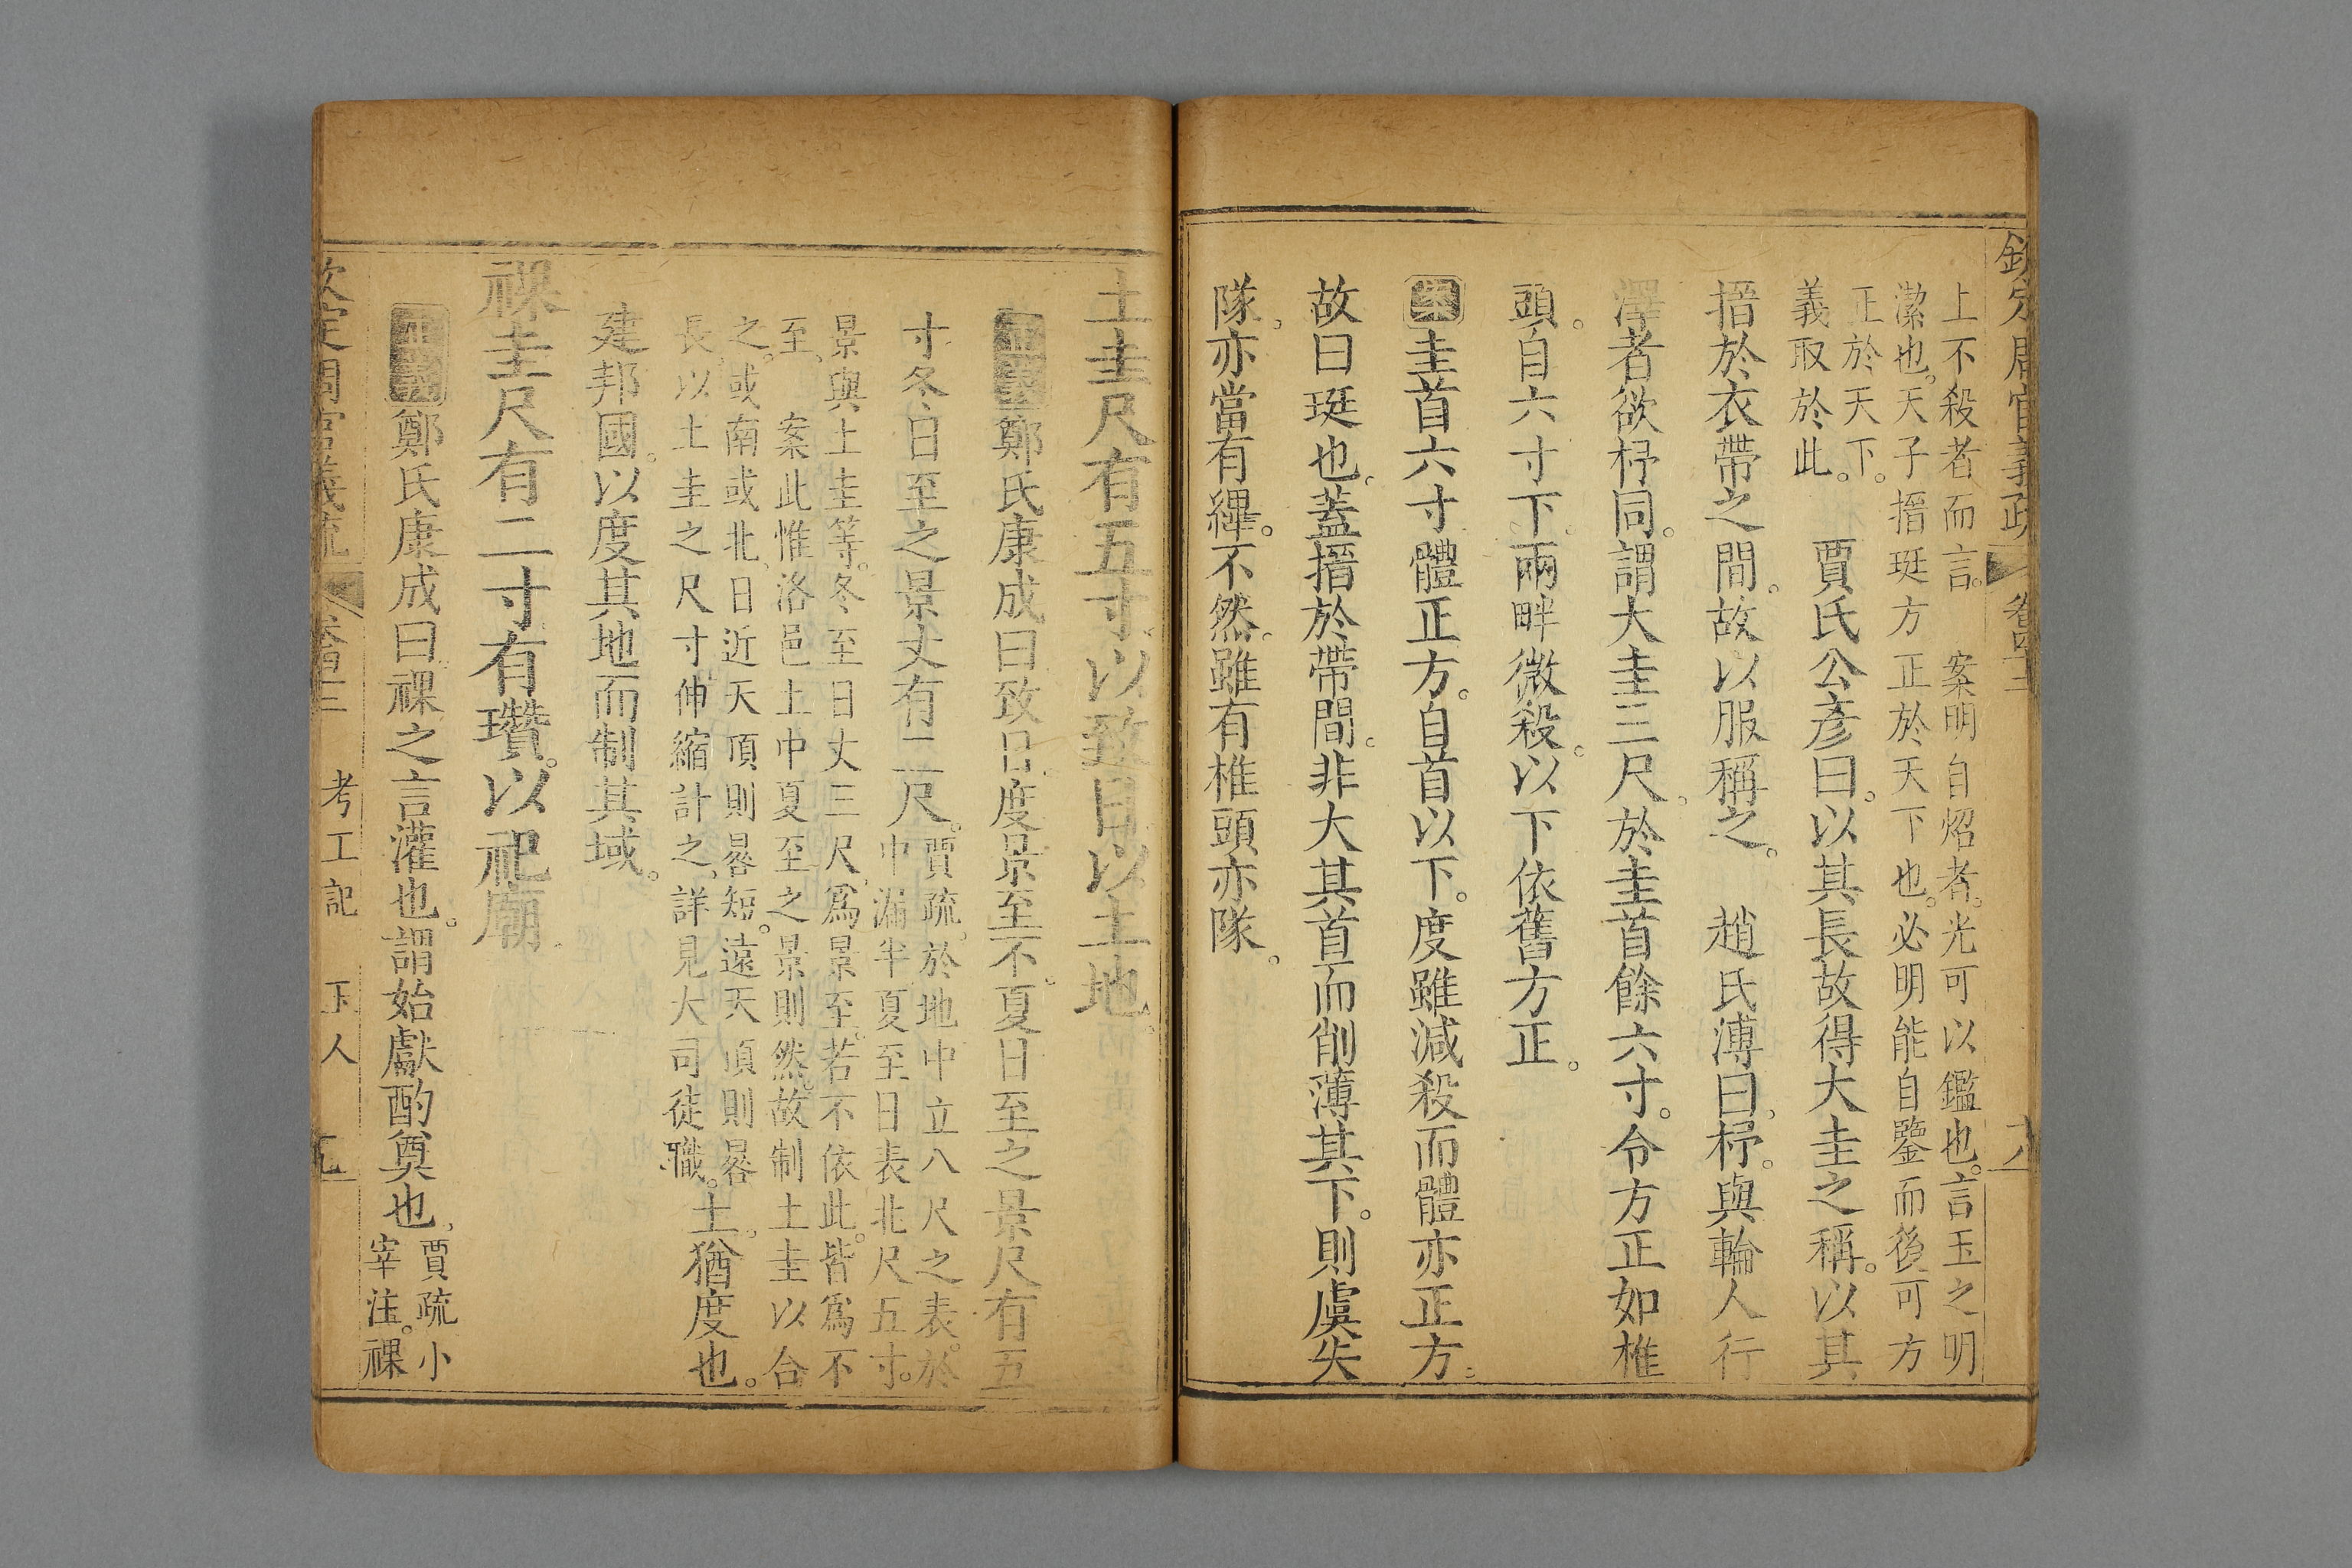 欽定周官義疏 卷四十三
上不殺者而言。 案明自炤者。光可以鑑也。言玉之明
潔也。天子搢珽方正於天下也。必明能自鑒而後可方
正於天下。
義取於此。
賈氏公彥曰。以其長故得大圭之稱。以其
搢於衣帶之間。故以服稱之。 趙氏溥曰。杼。與輪人行
澤者欲杼同。謂大圭三尺。於圭首餘六寸。令方正如椎
頭。自六寸下。兩畔微殺。以下依舊方正。
案圭首六寸體正方。自首以下。度雖減殺而體亦正方。
故曰珽也。蓋搢於帶間。非大其首而削薄其下。則虞失
隊。亦當有繟。不然。雖有椎頭亦隊。
土圭尺有五寸以致日以土地。
鄭氏康成曰致日度景至不。夏日至之景尺有五
寸。冬日至之景丈有三尺。
賈疏。於地中立八尺之表。於
中漏半夏至日表北尺五寸。
景與土圭等。冬至日丈三尺。爲景至。若不依此。皆爲不
至。 案此惟洛邑土中夏至之景則然。故制土圭以合
之。或南或北。日近天頂則晷短。遠天頂則晷
長。以土圭之尺寸伸縮計之。詳見大司徒職。
土。猶度也。
建邦國。以度其地而制其域。
祼圭尺有二寸有瓚。以祀廟。
鄭氏康成曰祼之言灌也。謂始獻酌奠也。
賈疏小
宰注。祼
欽定周官義疏 卷四十三 考工記 玉人